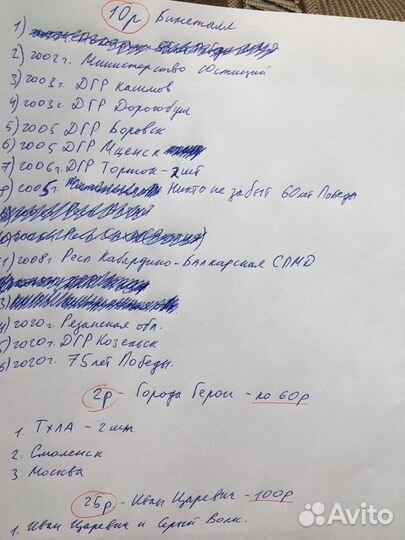 10р Биметалл
1)
2) 2002г. Министерство Юстиций
3) 2003г. ДГР Касимов
4) 2003г. ДГР Дорогобуж
5) 2005 ДГР Боровск
6) 2005 ДГР Мценск
7) 2006г. ДГР Торжок - 2шт
8) 2005г. Никто не забыт 60 лет Победы
1) 2008г Респ Кабардино-Балкарская СПМД
3)
4) 2020г. Рязанская обл.
5) 2020г. ДГР Козельск
6) 2020г. 75 лет Победы.
2р - Города Герои - по 60р
1. Тула - 2шт
2. Смоленск
3. Москва
25р - Иван Царевич - 100р
1. Иван Царевич и Серый Волк.
Avito